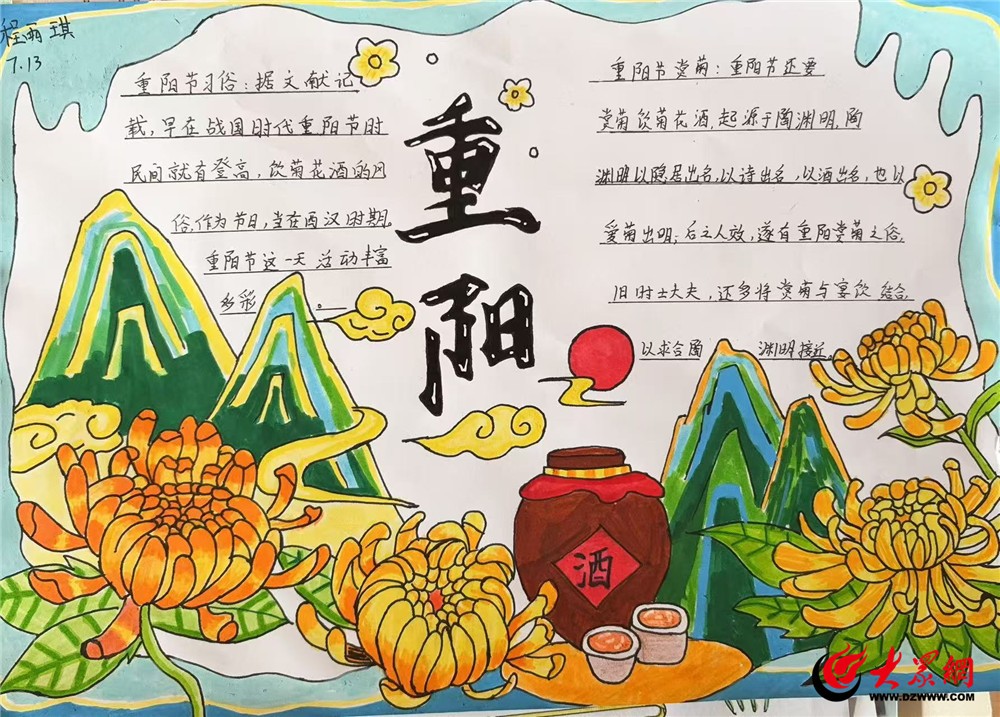 程雨琪
7.13
重阳节习俗：据文献记
载，早在战国时代重阳节时
民间就有登高，饮菊花酒的风
俗，作为节日，当在西汉时期。
重阳节这一天 活动丰富
多彩 。
重
阳
重阳节赏菊：重阳节还要
赏菊饮菊花酒，起源于陶渊明，陶
渊明以隐居出名，以诗出名，以酒出名，也以
爱菊出名；后之人效，遂有重阳赏菊之俗，
旧时士大夫，还多将赏菊与宴饮 结合，
以求合陶 渊明接近。
酒
大众网
WWW.DZWWW.COM